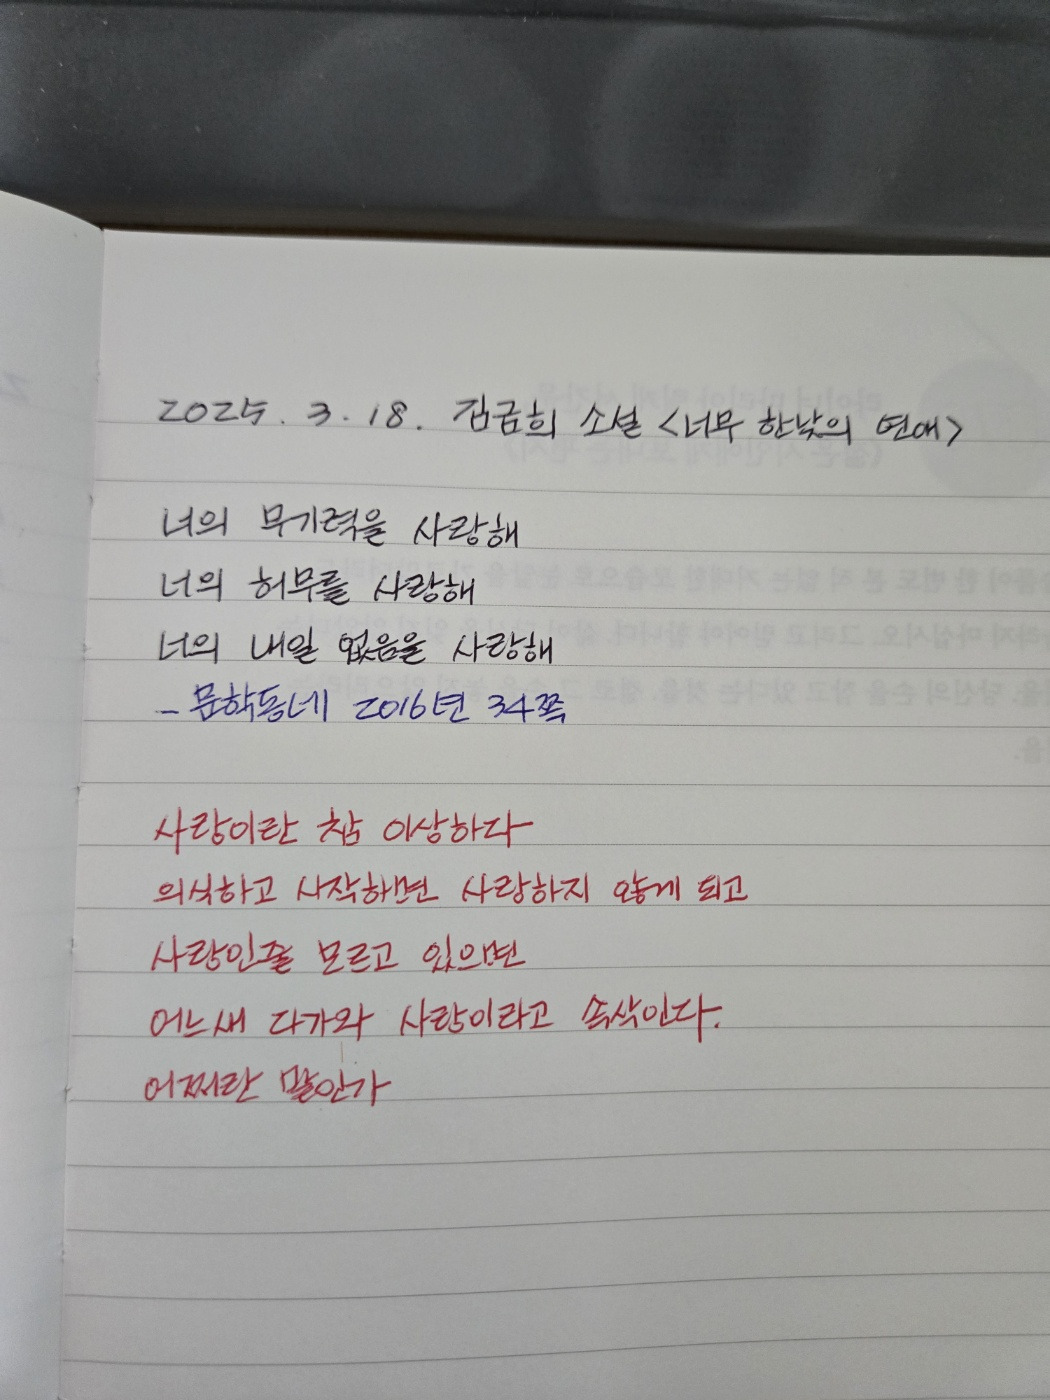 2025. 3. 18. 김금희 소설 <너무 한낮의 연애>
너의 무기력을 사랑해
너의 허무를 사랑해
너의 내일 없음을 사랑해
- 문학동네 2016년 34쪽
사랑이란 참 이상하다
의식하고 시작하면 사랑하지 않게 되고
사랑인줄 모르고 있으면
어느새 다가와 사랑이라고 속삭인다.
어쩌란 말인가